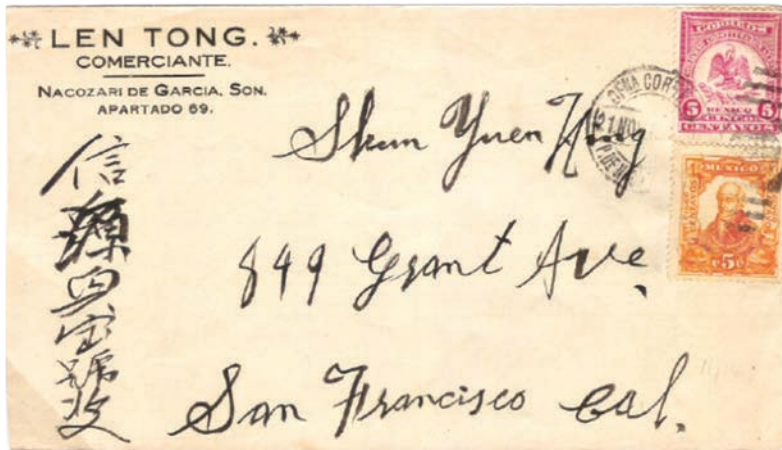 LEN TONG.
COMERCIANTE.
NACOZARI DE GARCIA, SON.
APARTADO 69.
信源
宝號收
Shun Yuen Hong
849 Grant Ave.
San Francisco Cal.
5 MEXICO 5
CINCO
CENTAVOS
MEXICO
CENTAVOS
5